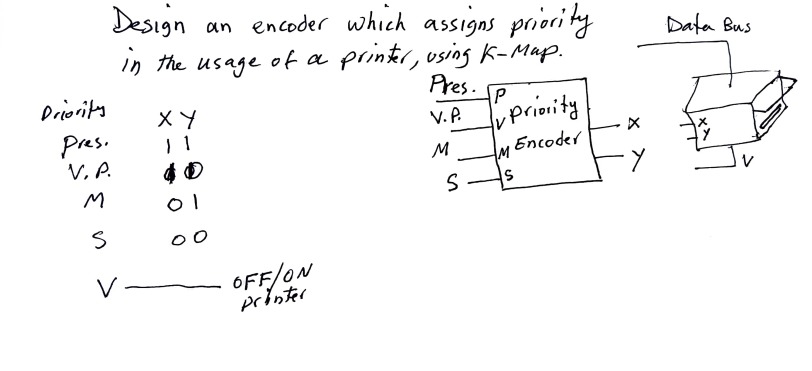 Design an encoder which assigns priority
in the usage of a printer, using K-Map.
Data Bus
Priority X Y
Pres. 1 1
V.P. 1 0
M 0 1
S 0 0
V OFF/ON
printer
Pres. P
V.P. V Priority X
M M Encoder Y
S S
X
Y
V